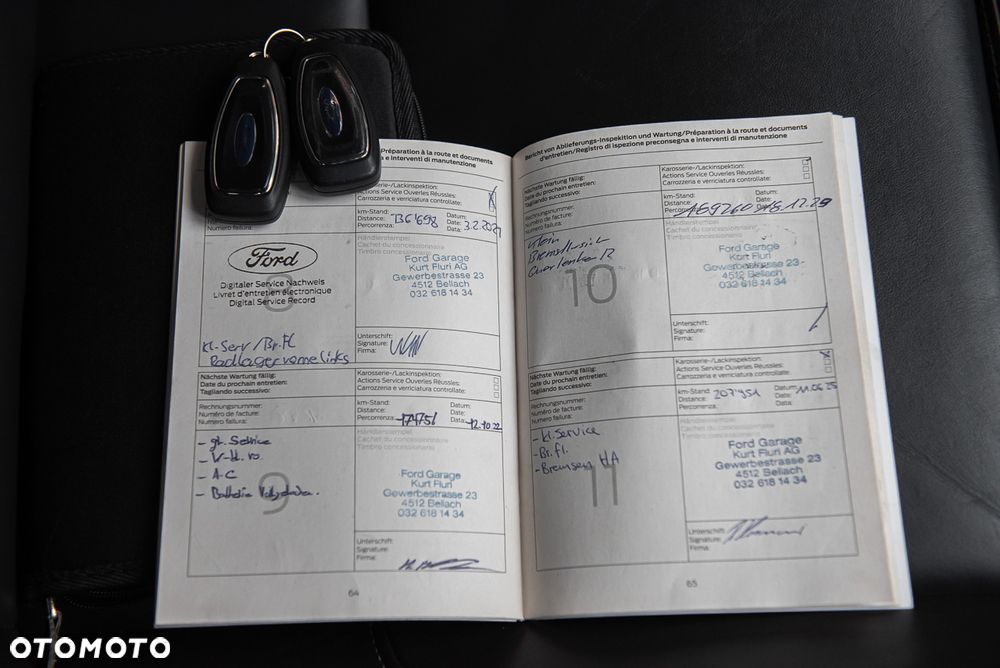 /Préparation à la route et documents
e interventi di manutenzione
Karosserie-/Lackinspektion:
Actions Service Ouvertes Réussies:
Carrozzeria e verniciatura controllate:
km-Stand:
Distance:
Percorrenza:
136'698
Datum:
Date:
Data:
3.2.2021
Numero fattura:
Ford
8
Digitaler Service Nachweis
Livret d'entretien électronique
Digital Service Record
Händlerstempel
Cachet du concessionnaire
Timbro concessionario
Ford Garage
Kurt Fluri AG
Gewerbestrasse 23
4512 Bellach
032 618 14 34
kl. Serv / Br.Fl
Radlager vorne links
Unterschrift:
Signature:
Firma:
Nächste Wartung fällig:
Date du prochain entretien:
Tagliando successivo:
Karosserie-/Lackinspektion:
Actions Service Ouvertes Réussies:
Carrozzeria e verniciatura controllate:
Rechnungsnummer:
Numéro de facture:
Numero fattura:
km-Stand:
Distance:
Percorrenza:
Datum:
Date:
Data:
12.10.22
- gr. Service
- A-C
- Batterie
9
Händlerstempel
Cachet du concessionnaire
Timbro concessionario
Ford Garage
Kurt Fluri AG
Gewerbestrasse 23
4512 Bellach
032 618 14 34
Unterschrift:
Signature:
Firma:
64
Bericht von Ablieferungs-Inspektion und Wartung/Préparation à la route et documents
d'entretien/Registro di ispezione preconsegna e interventi di manutenzione
Nächste Wartung fällig:
Date du prochain entretien:
Tagliando successivo:
Karosserie-/Lackinspektion:
Actions Service Ouvertes Réussies:
Carrozzeria e verniciatura controllate:
Rechnungsnummer:
Numéro de facture:
Numero fattura:
km-Stand:
Distance:
Percorrenza:
Datum:
Date:
Klein
Bremsflüssigk
Querlenker R
10
Händlerstempel
Cachet du concessionnaire
Timbro concessionario
Ford Garage
Kurt Fluri AG
Gewerbestrasse 23
4512 Bellach
032 618 14 34
Unterschrift:
Signature:
Firma:
Nächste Wartung fällig:
Date du prochain entretien:
Tagliando successivo:
Karosserie-/Lackinspektion:
Actions Service Ouvertes Réussies:
Carrozzeria e verniciatura controllate:
Rechnungsnummer:
Numéro de facture:
Numero fattura:
km-Stand:
Distance:
Percorrenza:
207'951
Datum:
Date:
Data:
11.06.25
- kl. Service
- Br.fl.
- Bremsen HA
11
Händlerstempel
Cachet du concessionnaire
Timbro concessionario
Ford Garage
Kurt Fluri AG
Gewerbestrasse 23
4512 Bellach
032 618 14 34
Unterschrift:
Signature:
Firma:
65
OTOMOTO